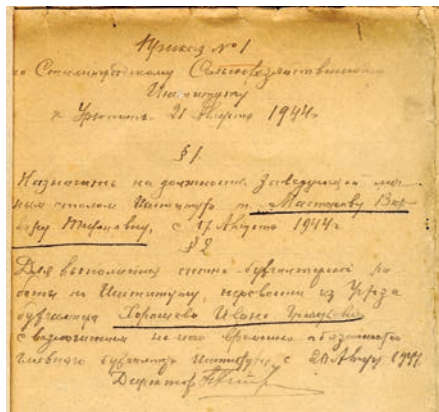 Приказ № 1
по Сталинградскому Сельскохозяйственному
Институту
г. Урюпинск 21 Августа 1944 г.
§ 1.
Назначить на должность Заведующей лич-
ным столом Института т. Мастерову Вар-
вару Тихоновну, с 17 Августа 1944 г.
§ 2
Для выполнения счетно бухгалтерской ра
боты по Институту перевести из
бухгалтера Хорошева Ивана
с возложением на него временно обязанности
главного бухгалтера Института с 20 Август 1944.
Директор